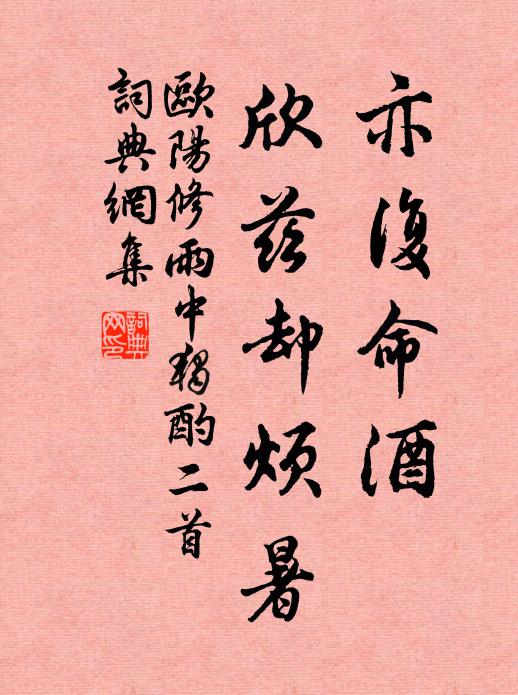 亦復命酒
欣茲却煩暑
歐陽修雨中獨酌二首
詞典網集
詞典
网印